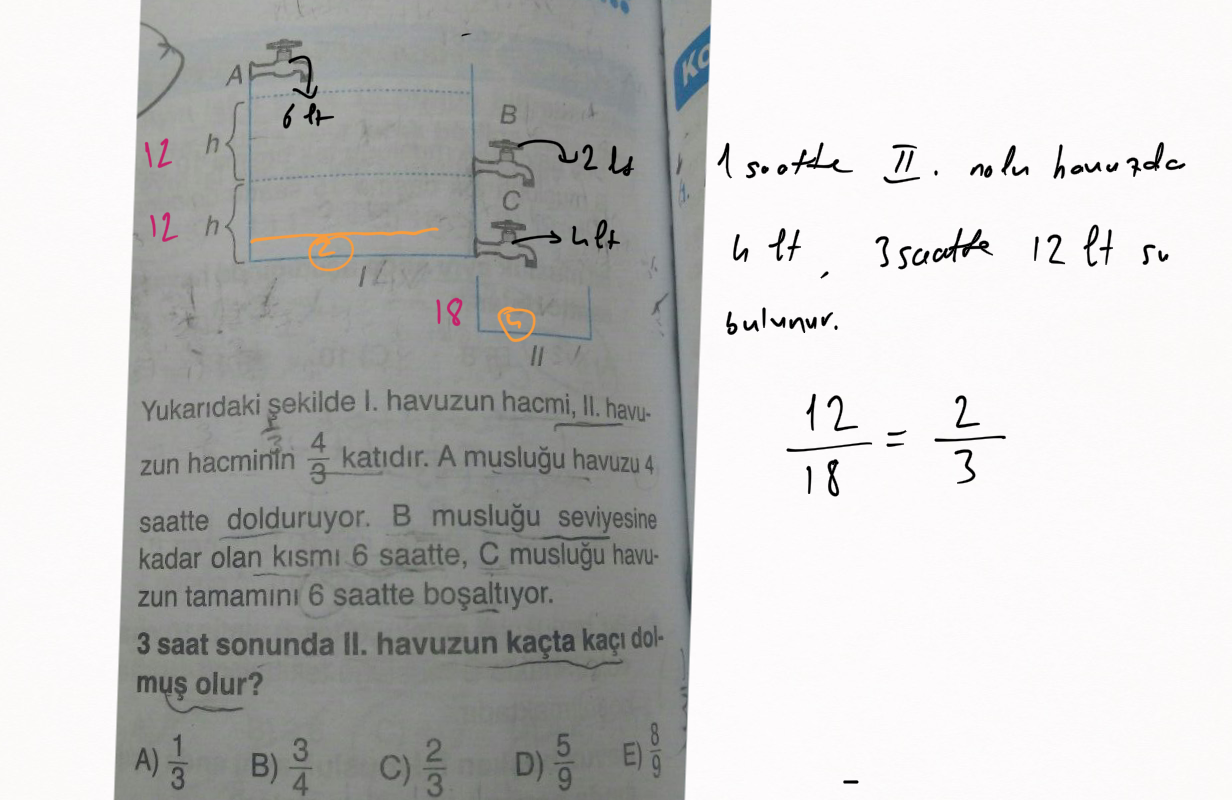 KO
A
6 lt
B
12
h
2 lt
C
12
h
2
4 lt
I
18
5
II
Yukarıdaki şekilde I. havuzun hacmi, II. havu-
zun hacminin 4/3 katıdır. A musluğu havuzu 4
saatte dolduruyor. B musluğu seviyesine
kadar olan kısmı 6 saatte, C musluğu havu-
zun tamamını 6 saatte boşaltıyor.
3 saat sonunda II. havuzun kaçta kaçı dol-
muş olur?
A) 1/3 B) 3/4 C) 2/3 D) 5/9 E) 8/9
1 saatte II. nolu havuzda
4 lt, 3 saatte 12 lt su
bulunur.
12/18 = 2/3